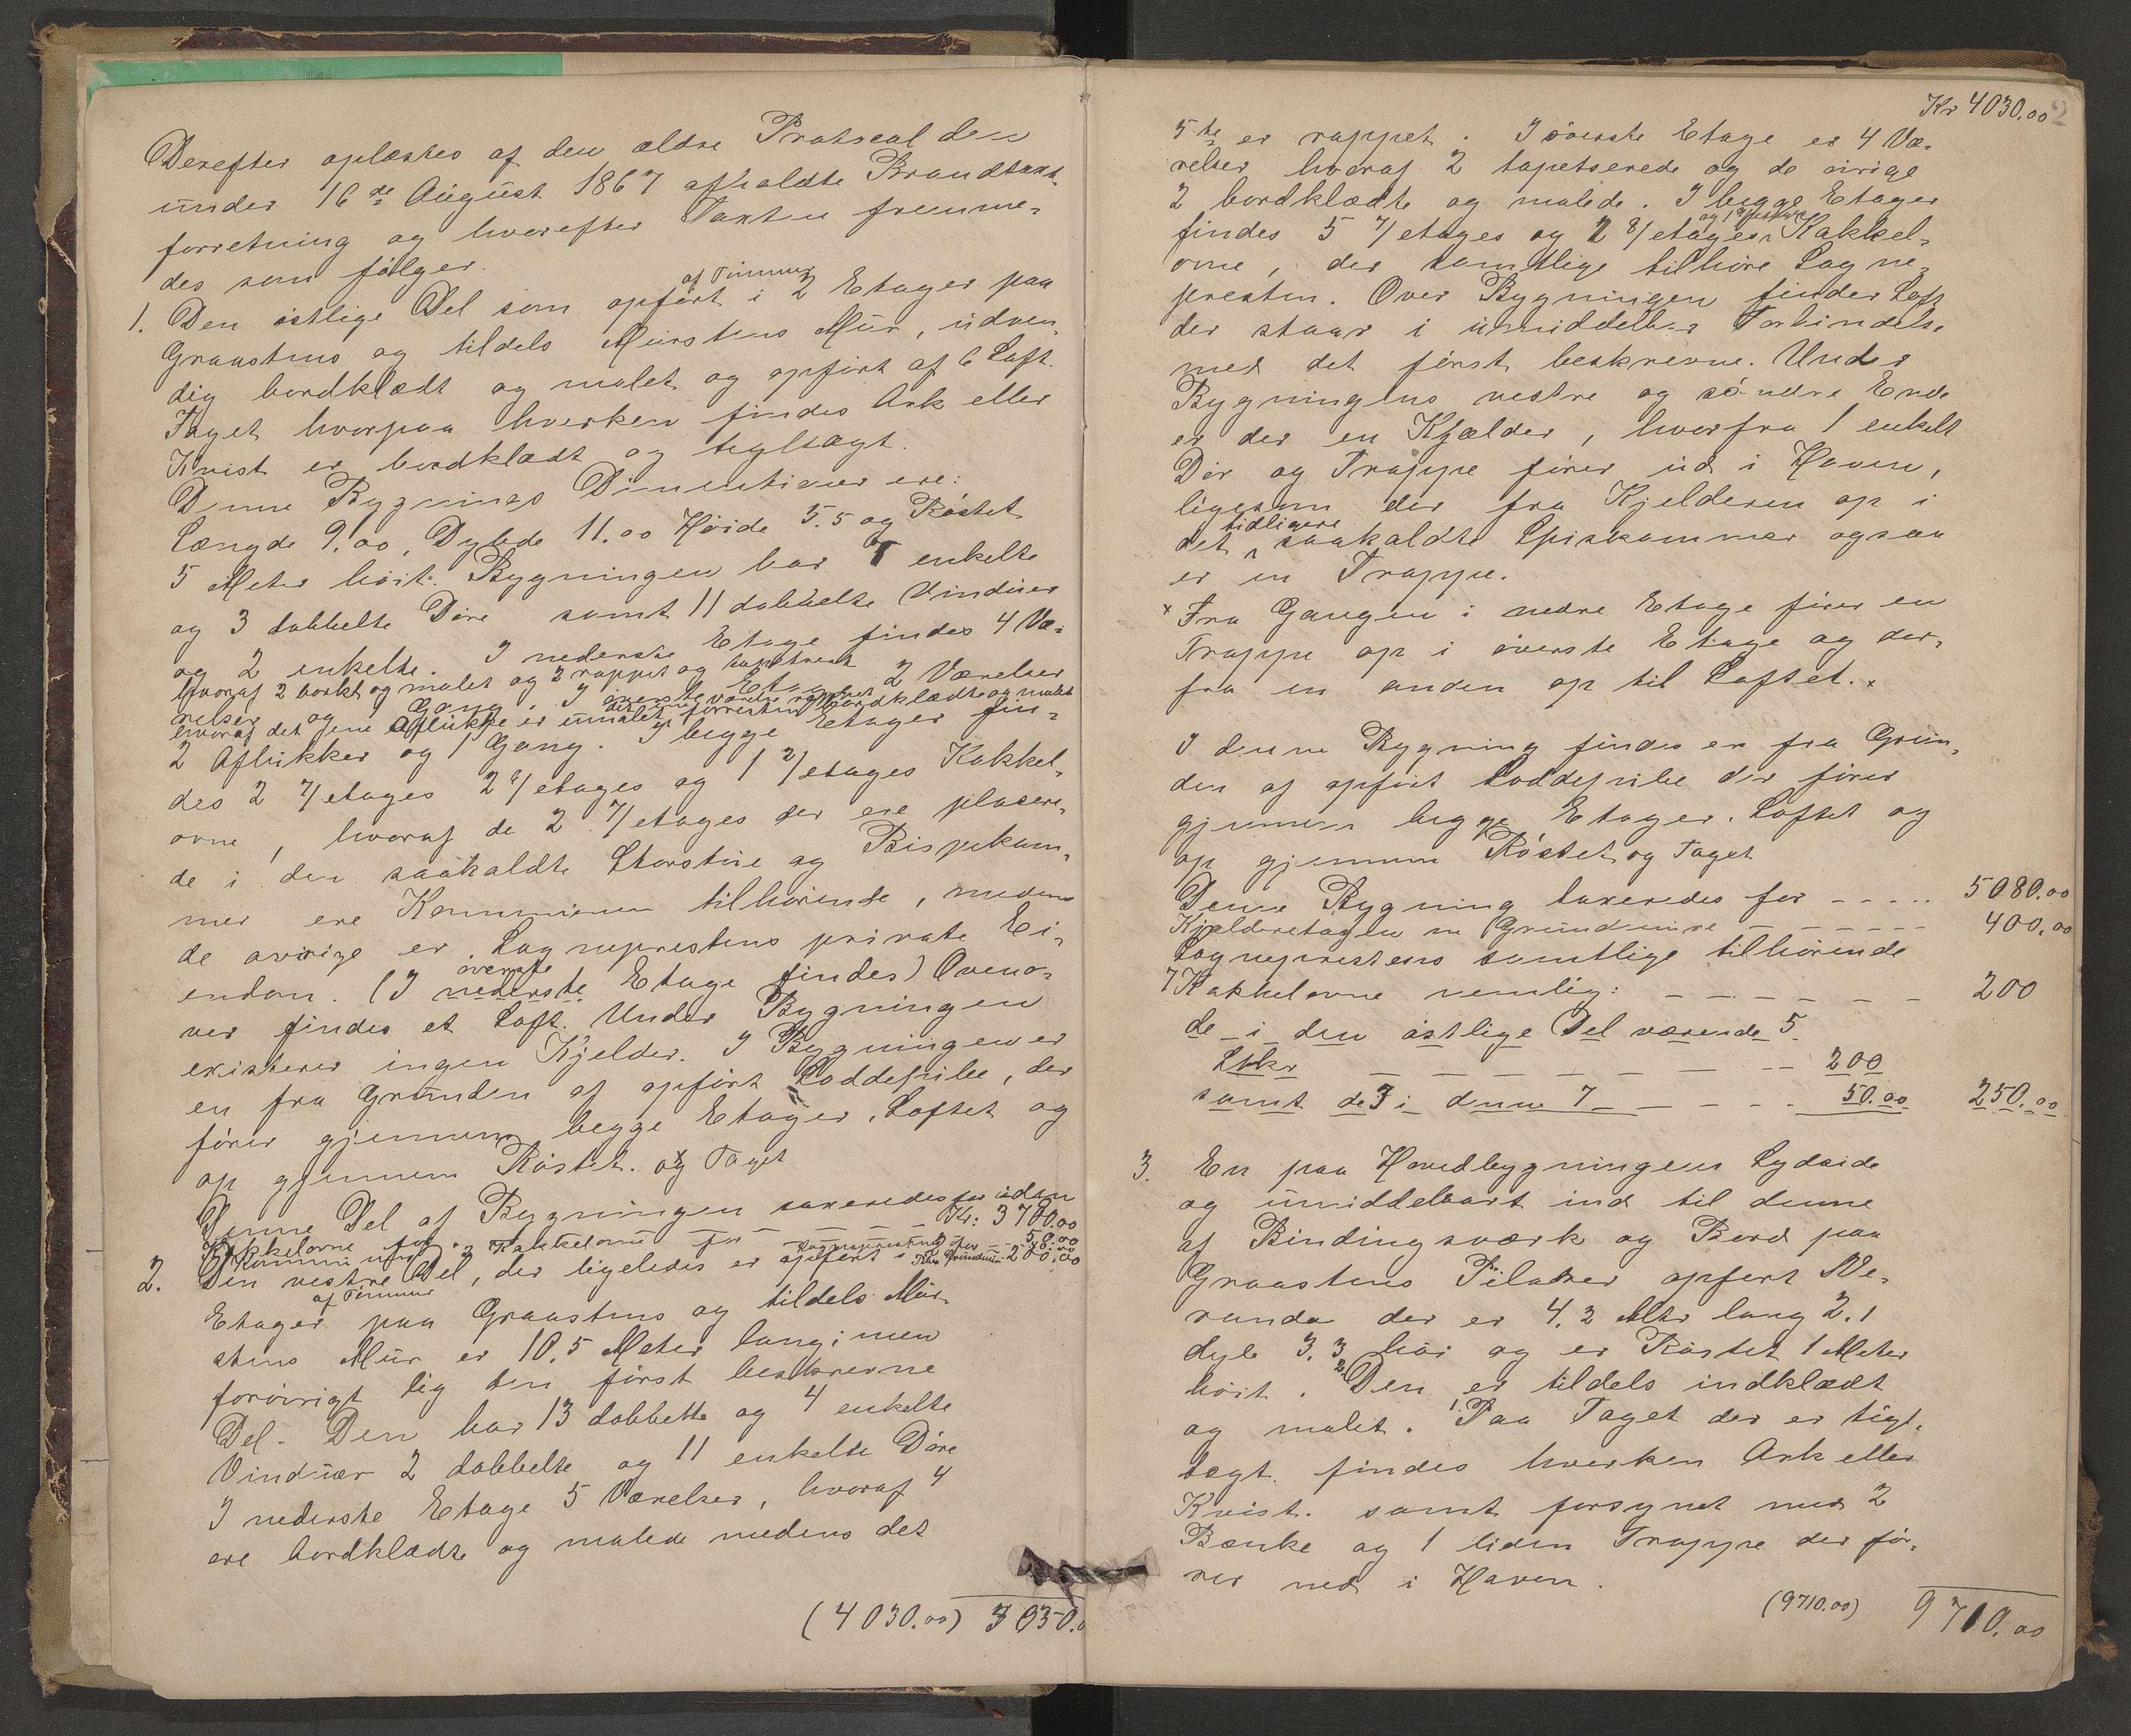 Derefter oplæstes af den ældre Protocol den
under 16de August 1867 afholdte Brandtaxt-
forretning og hvorefter Taxten fremme-
des som følger.
1. Den østlige Del som opført af Tømmer i 2 Etager paa
Graastens og tildels Murstens Mur, udven-
dig bordklædt og malet og opført af 6 Loft.
Taget hvorpaa hverken findes Ark eller
Kvist er bordklædt og teglTægt.
Denne Bygnings Dimentioner ere:
Længde 9.00, Dybde 11.00 Høide 5.5 og Røstet
5 Meter høit. Bygningen har enkelte
og 3 dobbelte Døre samt 11 dobbelte Vinduer
og 2 enkelte. I nederste Etage findes 4 Væ-
hvoraf 2 bordkl og malet og 2 rappet og tapetseret
relser og Gang. I øverste Etage 2 Værelser
hvoraf det ene Aflukke er umalet bordklædte og malet
2 Aflukker og 1 Gang. I begge Etager fin-
des 2 7/etages 2 6/etages og 1 2/etages Kakkel-
ovne, hvoraf de 2 7/etages der ere placere-
de i den saakaldte Storstue og Bispekam-
mer ere Kommunen tilhørende, medens
de øvrige er Sogneprestens private Ei-
endom. (I nederste øverste Etage findes) Oveno-
ver findes et Loft. Under Bygningen
existerer ingen Kjelder. I Bygningen er
en fra Grunden af opført Soddepibe, der
fører gjennem begge Etager, Loftet og
op gjennem Røstet. og Taget
Denne Del af Bygningen taxeredes for uden
Kakkelovne for Kr: 3780.00
Kommunens 2 Kakkelovne for 50.00
200.00
2. Den vestre Del, der ligeledes er opført i
Etager af Tømmer paa Graastens og tildels Mur-
stens Mur er 10.5 Meter lang; men
forøvrigt lig den først beskrevne
Del. Den har 13 dobbelte og 4 enkelte
Vinduer 2 dobbelte og 11 enkelte Døre
I nederste Etage 5 Værelser, hvoraf 4
ere bordklædte og malede medens det
(4030.00)
Kr 4030.00
5te er rappet. I øverste Etage er 4 Væ-
relser hvoraf 2 tapetserede og de øvrige
2 bordklædte og malede. I begge Etager
findes 5 7/etages og 2 8/etages Kakkel-
ovne, der samtlige tilhøre Sogne-
presten. Over Bygningen findes Loft
der staar i umiddelbar Forbindelse
med det først beskrevne. Under
Bygningens vestre og søndre Ende
er der en Kjælder, hvorfra 1 enkelt
Dør og Trappe fører ud i Haven,
ligesom der fra Kjelderen op i
det tidligere saakaldte Spiskammer ogsaa
er en Trappe.
x Fra Gangen i nedre Etage fører en
Trappe op i øverste Etage og der-
fra en anden op til Loftet. x
I denne Bygning findes en fra Grun-
den af opført Soddepibe der fører
gjennem begge Etager, Loftet og
op gjennem Røstet og Taget
Denne Bygning taxeredes for 5080.00
Kjælderetagen en Grundmure 400.00
Sogneprestens samtlige tilhørende
7 Kakkelovne nemlig: 200
de i den østlige Del værende 5
Stkr 200
samt de 3 i denne 7 50.00 250.00
3. En paa Hovedbygningens Sydside
og umiddelbart ind til denne
af Bindingsværk og Bord paa
Graastens Pilarer opført Ve-
randa der er 4.2 Mtr lang 2.1
dyb 3.3 høi og er Røstet 1 Meter
høit. Den er tildels indklædt
og malet. Paa Taget der er tegl-
tægt findes hverken Ark eller
Kvist. samt forsynet med 2
Bænke og 1 liden Trappe der fø-
rer ned i Haven.
(9710.00) 9710.00